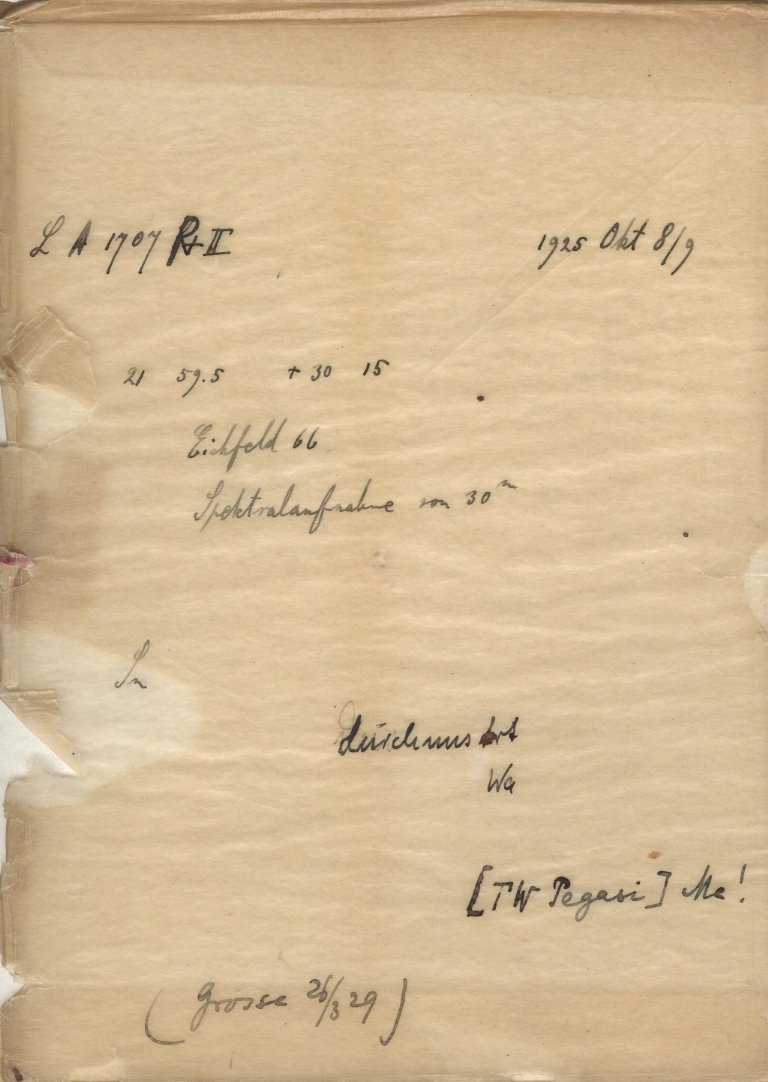 L A 1707 Pr II 1925 Okt 8/9
21 59.5 + 30 15
Eichfeld 66
Spektralaufnahme von 30ᵐ
Sn
durchmustert
Wa
[TW Pegasi] Me!
(Grosse 26/3 29)